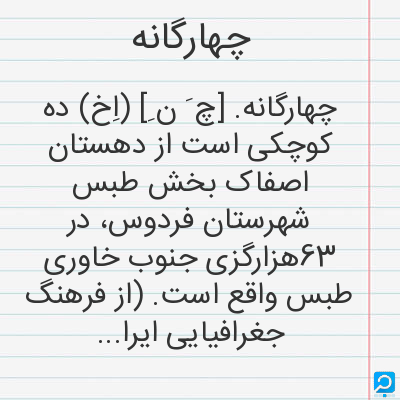 چهارگانه
چهارگانه. [چ َ ن ِ] (اِخ) ده
کوچکی است از دهستان
اصفاک بخش طبس
شهرستان فردوس، در
۶۳هزارگزی جنوب خاوری
طبس واقع است. (از فرهنگ
جغرافیایی ایرا...